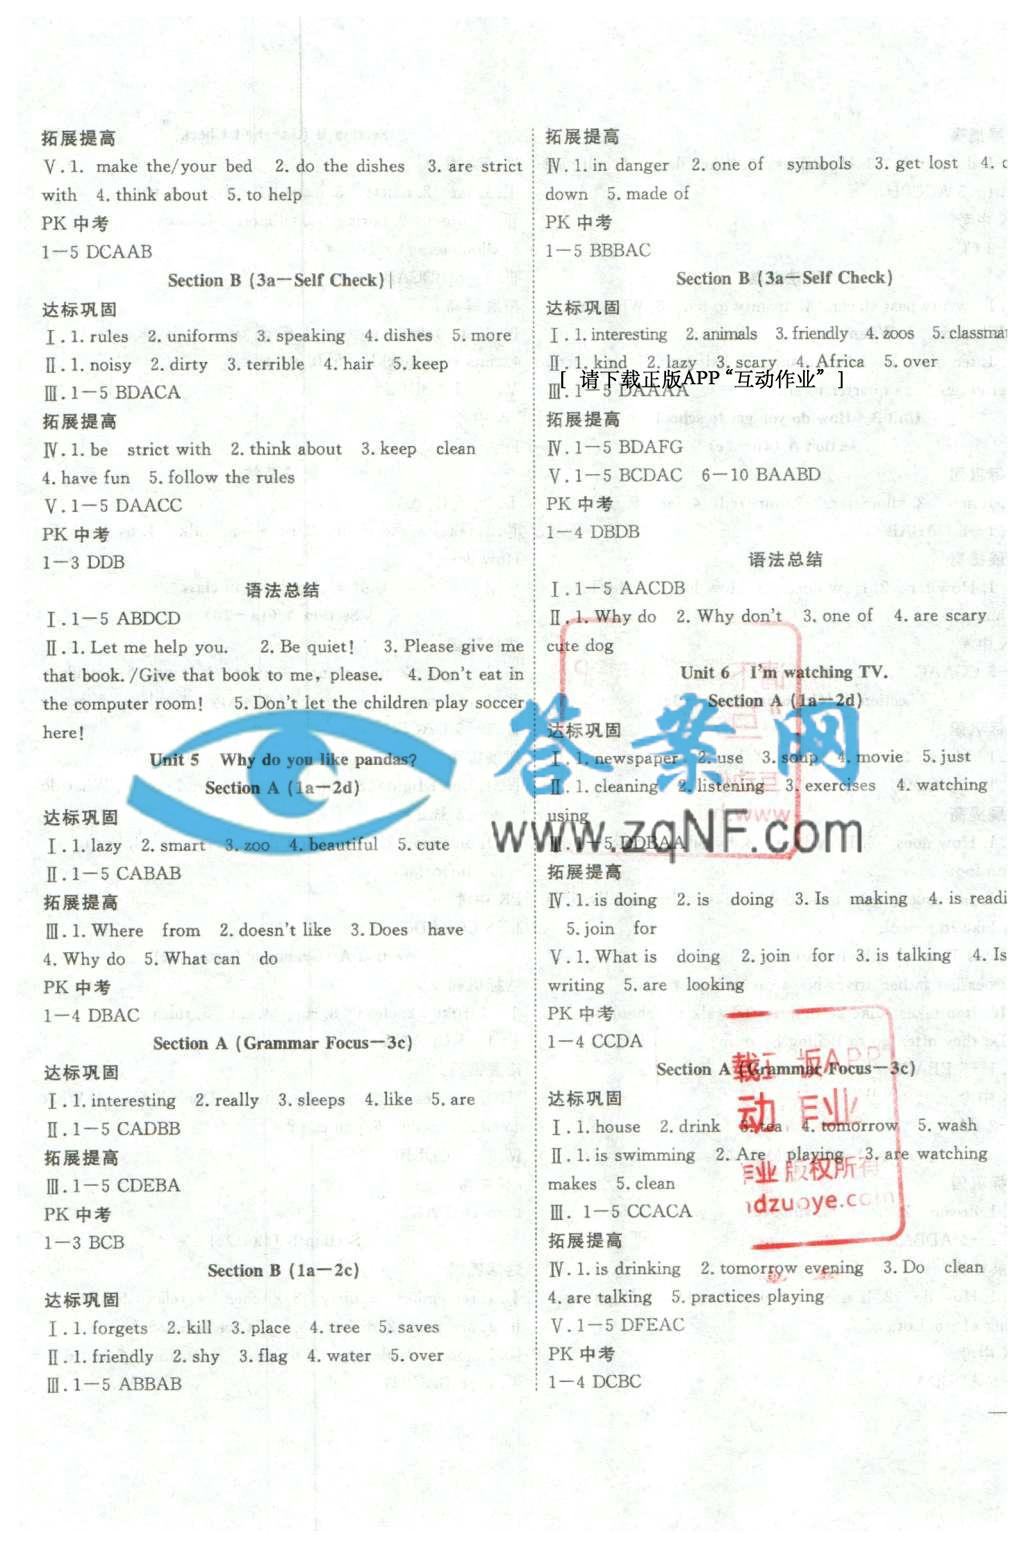 拓展提高
Ⅴ. 1. make the/your bed 2. do the dishes 3. are strict
with 4. think about 5. to help
PK 中考
1—5 DCAAB
Section B (3a—Self Check)
达标巩固
Ⅰ. 1. rules 2. uniforms 3. speaking 4. dishes 5. more
Ⅱ. 1. noisy 2. dirty 3. terrible 4. hair 5. keep
Ⅲ. 1—5 BDACA
拓展提高
Ⅳ. 1. be strict with 2. think about 3. keep clean
4. have fun 5. follow the rules
Ⅴ. 1—5 DAACC
PK 中考
1—3 DDB
语法总结
Ⅰ. 1—5 ABDCD
Ⅱ. 1. Let me help you. 2. Be quiet! 3. Please give me
that book. /Give that book to me, please. 4. Don't eat in
the computer room! 5. Don't let the children play soccer
here!
Unit 5 Why do you like pandas?
Section A (1a—2d)
达标巩固
Ⅰ. 1. lazy 2. smart 3. zoo 4. beautiful 5. cute
Ⅱ. 1—5 CABAB
拓展提高
Ⅲ. 1. Where from 2. doesn't like 3. Does have
4. Why do 5. What can do
PK 中考
1—4 DBAC
Section A (Grammar Focus—3c)
达标巩固
Ⅰ. 1. interesting 2. really 3. sleeps 4. like 5. are
Ⅱ. 1—5 CADBB
拓展提高
Ⅲ. 1—5 CDEBA
PK 中考
1—3 BCB
Section B (1a—2c)
达标巩固
Ⅰ. 1. forgets 2. kill 3. place 4. tree 5. saves
Ⅱ. 1. friendly 2. shy 3. flag 4. water 5. over
Ⅲ. 1—5 ABBAB
拓展提高
Ⅳ. 1. in danger 2. one of symbols 3. get lost 4.
down 5. made of
PK 中考
1—5 BBBAC
Section B (3a—Self Check)
达标巩固
Ⅰ. 1. interesting 2. animals 3. friendly 4. zoos 5. classmat
Ⅱ. 1. kind 2. lazy 3. scary 4. Africa 5. over
[ 请下载正版APP“互动作业” ]
Ⅲ. 1—5 DAAAA
拓展提高
Ⅳ. 1—5 BDAFG
Ⅴ. 1—5 BCDAC 6—10 BAABD
PK 中考
1—4 DBDB
语法总结
Ⅰ. 1—5 AACDB
Ⅱ. 1. Why do 2. Why don't 3. one of 4. are scary
cute dog
Unit 6 I'm watching TV.
Section A (1a—2d)
达标巩固
Ⅰ. 1. newspaper 2. use 3. soup 4. movie 5. just
Ⅱ. 1. cleaning 2. listening 3. exercises 4. watching
using
Ⅱ. 1—5 DDBAA
拓展提高
Ⅳ. 1. is doing 2. is doing 3. Is making 4. is readi
5. join for
Ⅴ. 1. What is doing 2. join for 3. is talking 4. Is
writing 5. are looking
PK 中考
1—4 CCDA
Section A (Grammar Focus—3c)
达标巩固
Ⅰ. 1. house 2. drink 3. tea 4. tomorrow 5. wash
Ⅱ. 1. is swimming 2. Are playing 3. are watching
makes 5. clean
Ⅲ. 1—5 CCACA
拓展提高
Ⅳ. 1. is drinking 2. tomorrow evening 3. Do clean
4. are talking 5. practices playing
Ⅴ. 1—5 DFEAC
PK 中考
1—4 DCBC
答案网
www.zqNF.com
动作业
作业 版权所有
ndzuoye.com